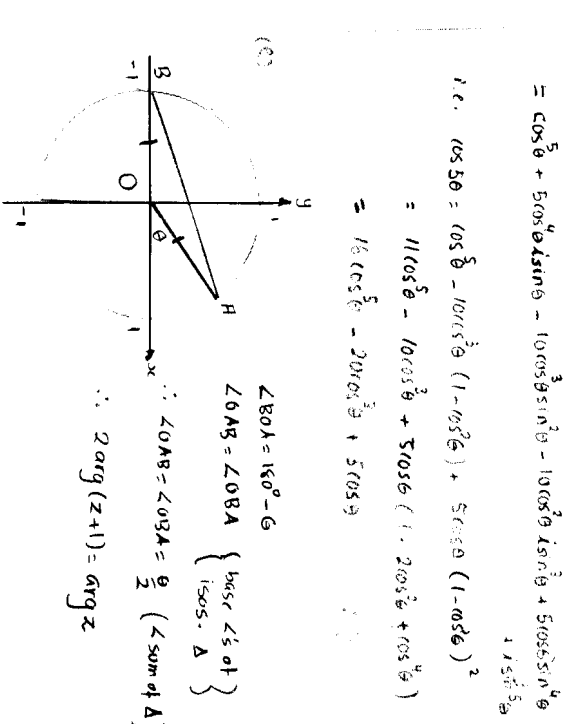 = cos⁵θ + 5cos⁴θ i sinθ - 10cos³θ sin²θ - 10cos²θ i sin³θ + 5cosθ sin⁴θ
+ i sin⁵θ
i.e. cos 5θ = cos⁵θ - 10cos³θ (1-cos²θ) + 5cosθ (1-cos²θ)²
= 11cos⁵θ - 10cos³θ + 5cosθ (1 - 2cos²θ + cos⁴θ)
= 16cos⁵θ - 20cos³θ + 5cosθ
(c)
y
1
A
B
-1
O
θ
1
x
-1
∠BOA = 180° - θ
∠OAB = ∠OBA { base ∠'s of
isos. Δ }
∴ ∠OAB = ∠OBA = θ/2 (∠ sum of Δ)
∴ 2arg(z+1) = arg z